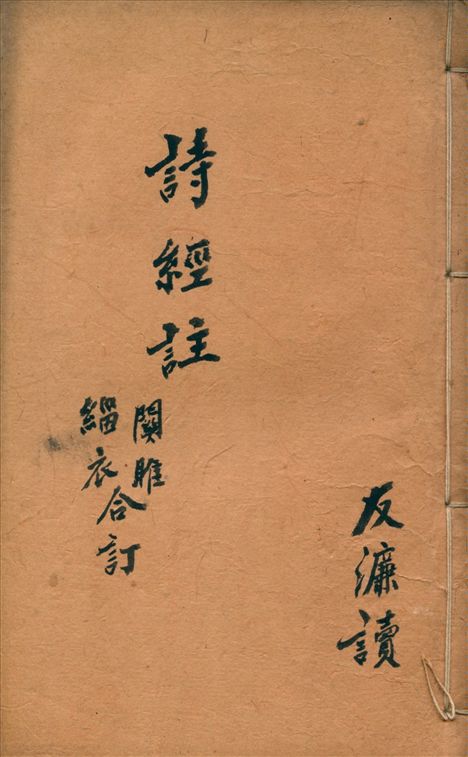 友濂讀
詩經註
關雎
緇衣合訂